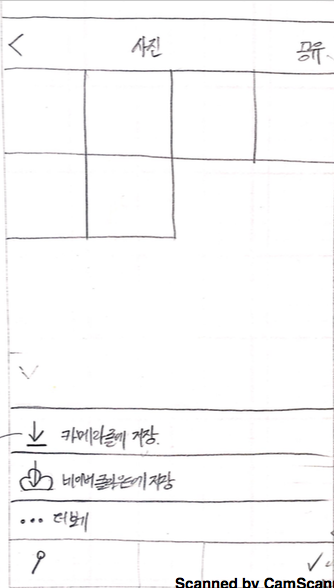 < 사진 공유
↓ 카메라롤에 저장.
네이버클라우드에 저장
... 더보기
Scanned by CamScan